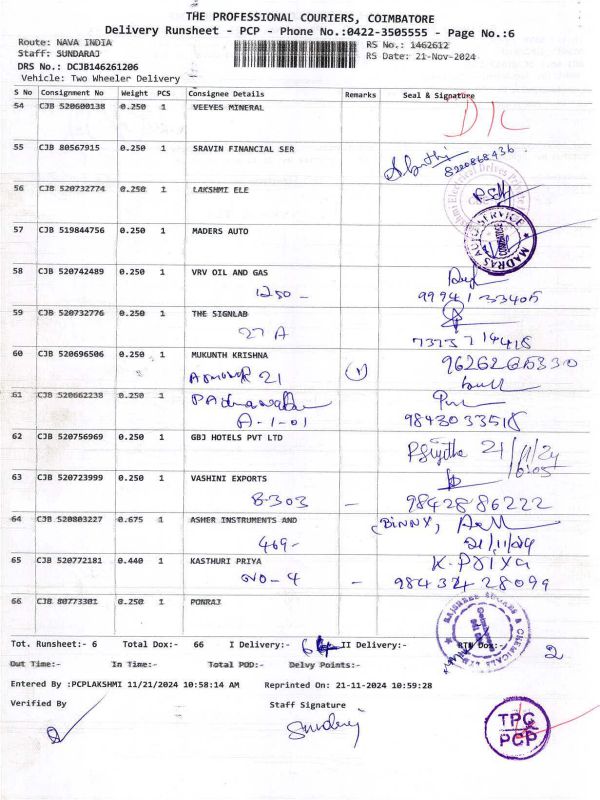 THE PROFESSIONAL COURIERS, COIMBATORE
Delivery Runsheet - PCP - Phone No.:0422-3505555 - Page No.:6
Route: NAVA INDIA RS No.: 1462612
Staff: SUNDARAJ RS Date: 21-Nov-2024
DRS No.: DCJB146261206
Vehicle: Two Wheeler Delivery
S No Consignment No Weight PCS Consignee Details Remarks Seal & Signature
54 CJB 520600138 0.250 1 VEEYES MINERAL D/C
55 CJB 80567915 0.250 1 SRAVIN FINANCIAL SER
8220868436
56 CJB 520732774 0.250 1 LAKSHMI ELE
57 CJB 519844756 0.250 1 MADERS AUTO
MADRAS AUTO SERVICE
COIMBATORE
58 CJB 520742489 0.250 1 VRV OIL AND GAS
1250 - 99941 33405
59 CJB 520732776 0.250 1 THE SIGNLAB
27 A 73737 14418
60 CJB 520696506 0.250 1 MUKUNTH KRISHNA
21
61 CJB 520662238 0.250 1
A-1-01 9843033518
62 CJB 520756969 0.250 1 GBJ HOTELS PVT LTD 21/11/24
63 CJB 520723999 0.250 1 VASHINI EXPORTS
B-303 - 98428 86222
64 CJB 520803227 0.675 1 ASHER INSTRUMENTS AND (BINNY)
469- 21/11/24
65 CJB 520772181 0.440 1 KASTHURI PRIYA K-PRIYA
NO-4 - 98434 28099
66 CJB 80773301 0.250 1 PONRAJ
Tot. Runsheet:- 6 Total Dox:- 66 I Delivery:- 64 II Delivery:- RTN Dox:- 2
Out Time:- In Time:- Total POD:- Delvy Points:-
Entered By :PCPLAKSHMI 11/21/2024 10:58:14 AM Reprinted On: 21-11-2024 10:59:28
Verified By Staff Signature
TPC
PCP